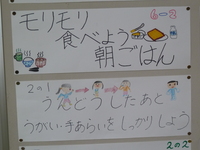 モリモリ
6-2
食べよう
朝ごはん
2の1
うんどうしたあと
うがい・手あらいをしっかりしよう
2の2